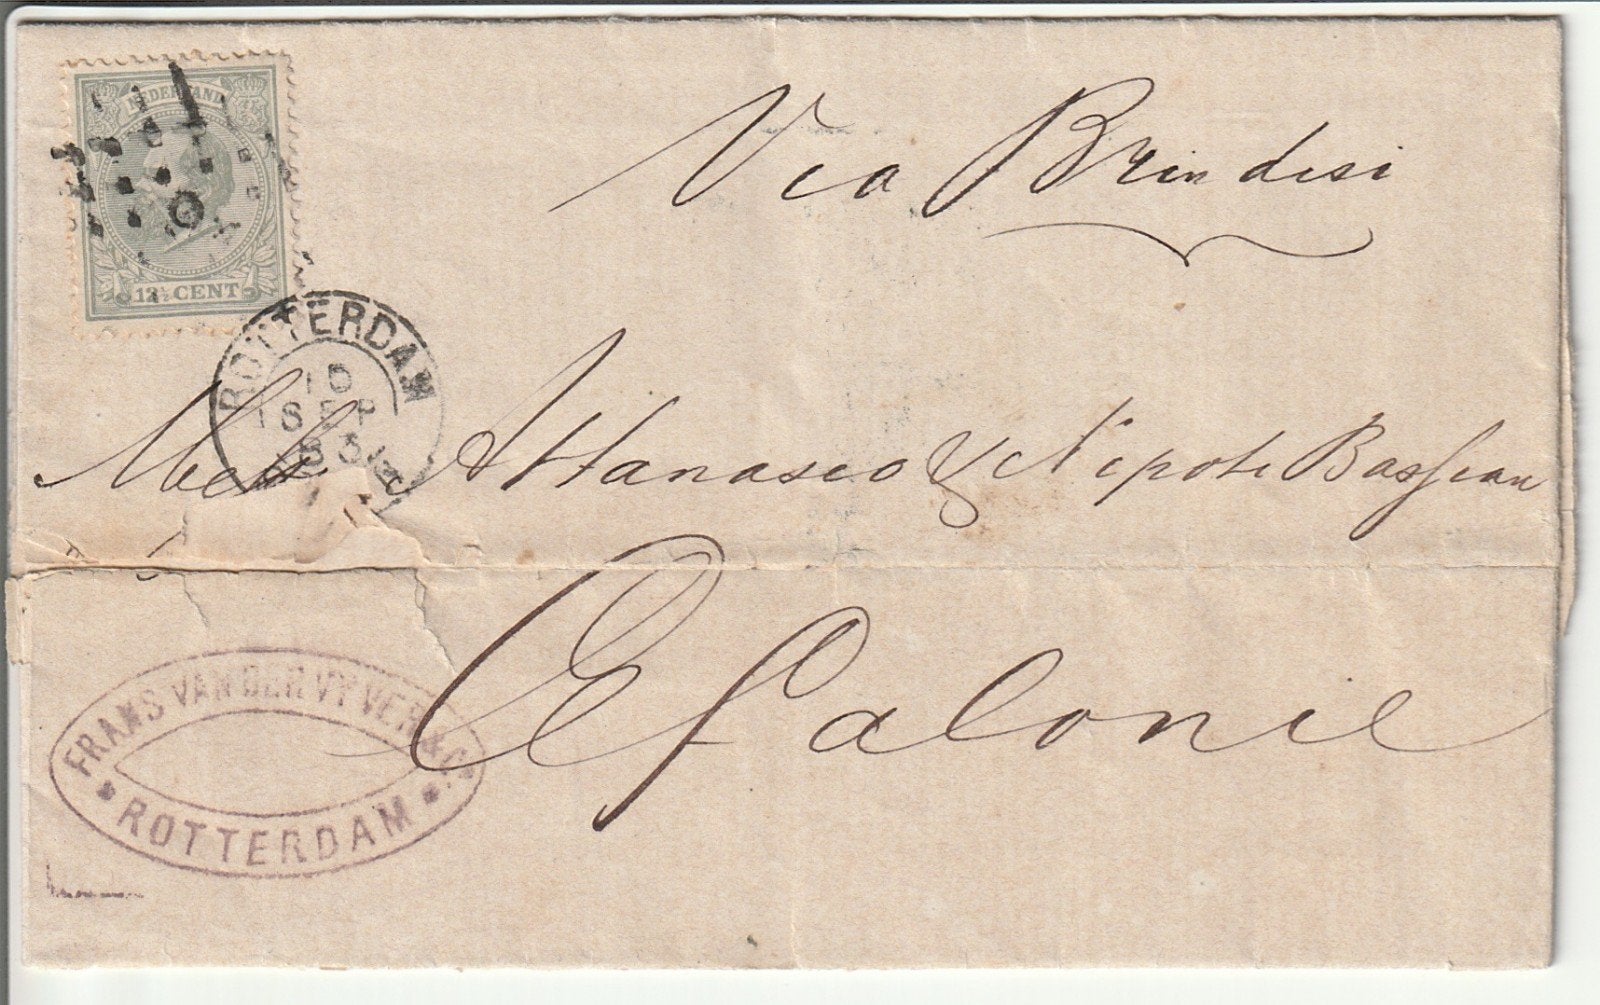 NEDERLAND
12½ CENT
Via Brindisi
ROTTERDAM
1 SEP
83
Attanasio & Nipoti Bassian
Cefalonie
FRANS VAN DER VYVER & Co
ROTTERDAM